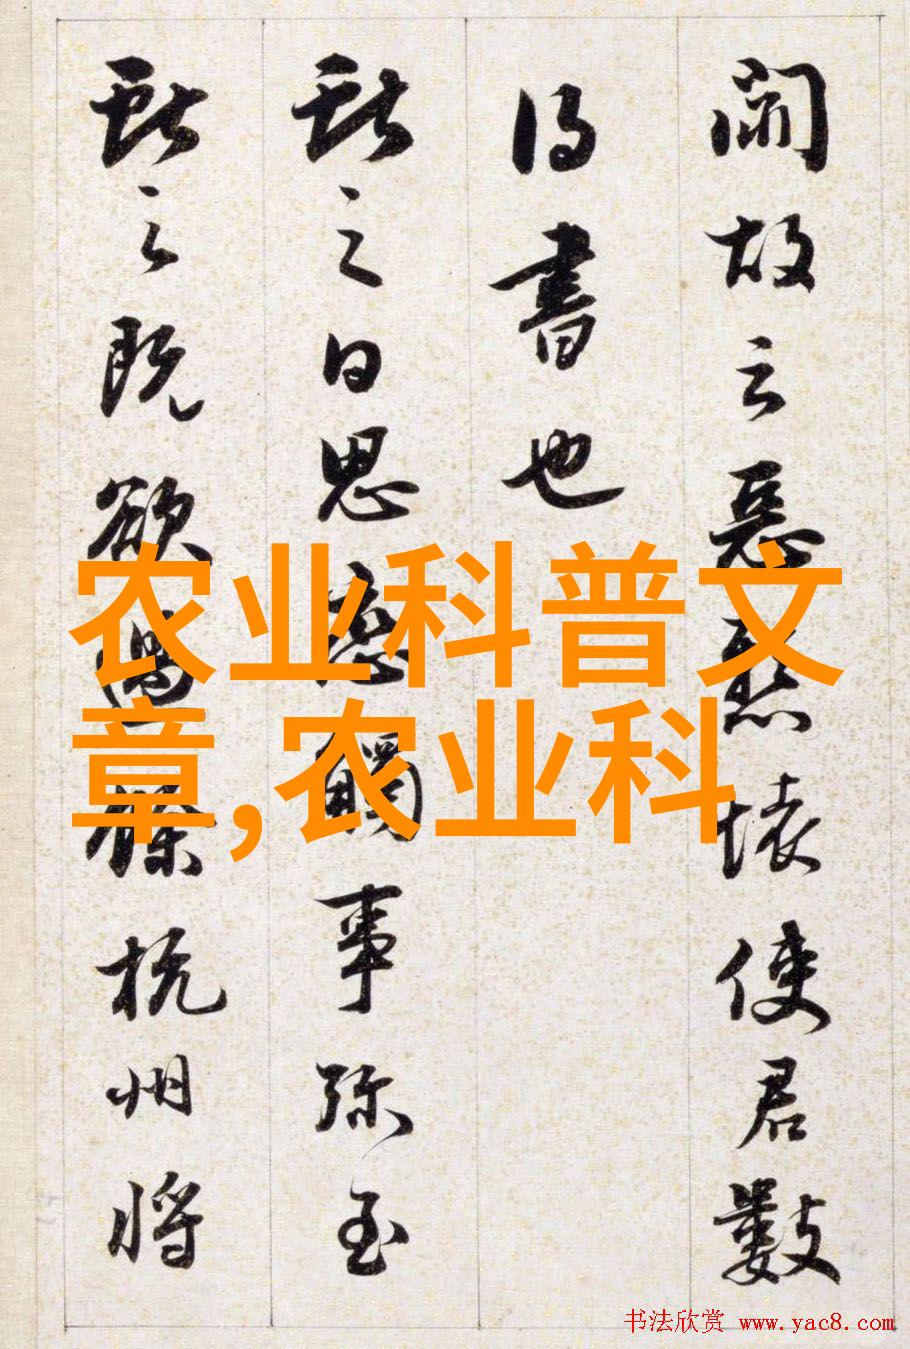 故云恶悬怀使君数
得书也
献之白思恋触事弥至
献之既欲过馀杭州将
农业科普文
章,农业科
书法欣赏 www.yac8.com